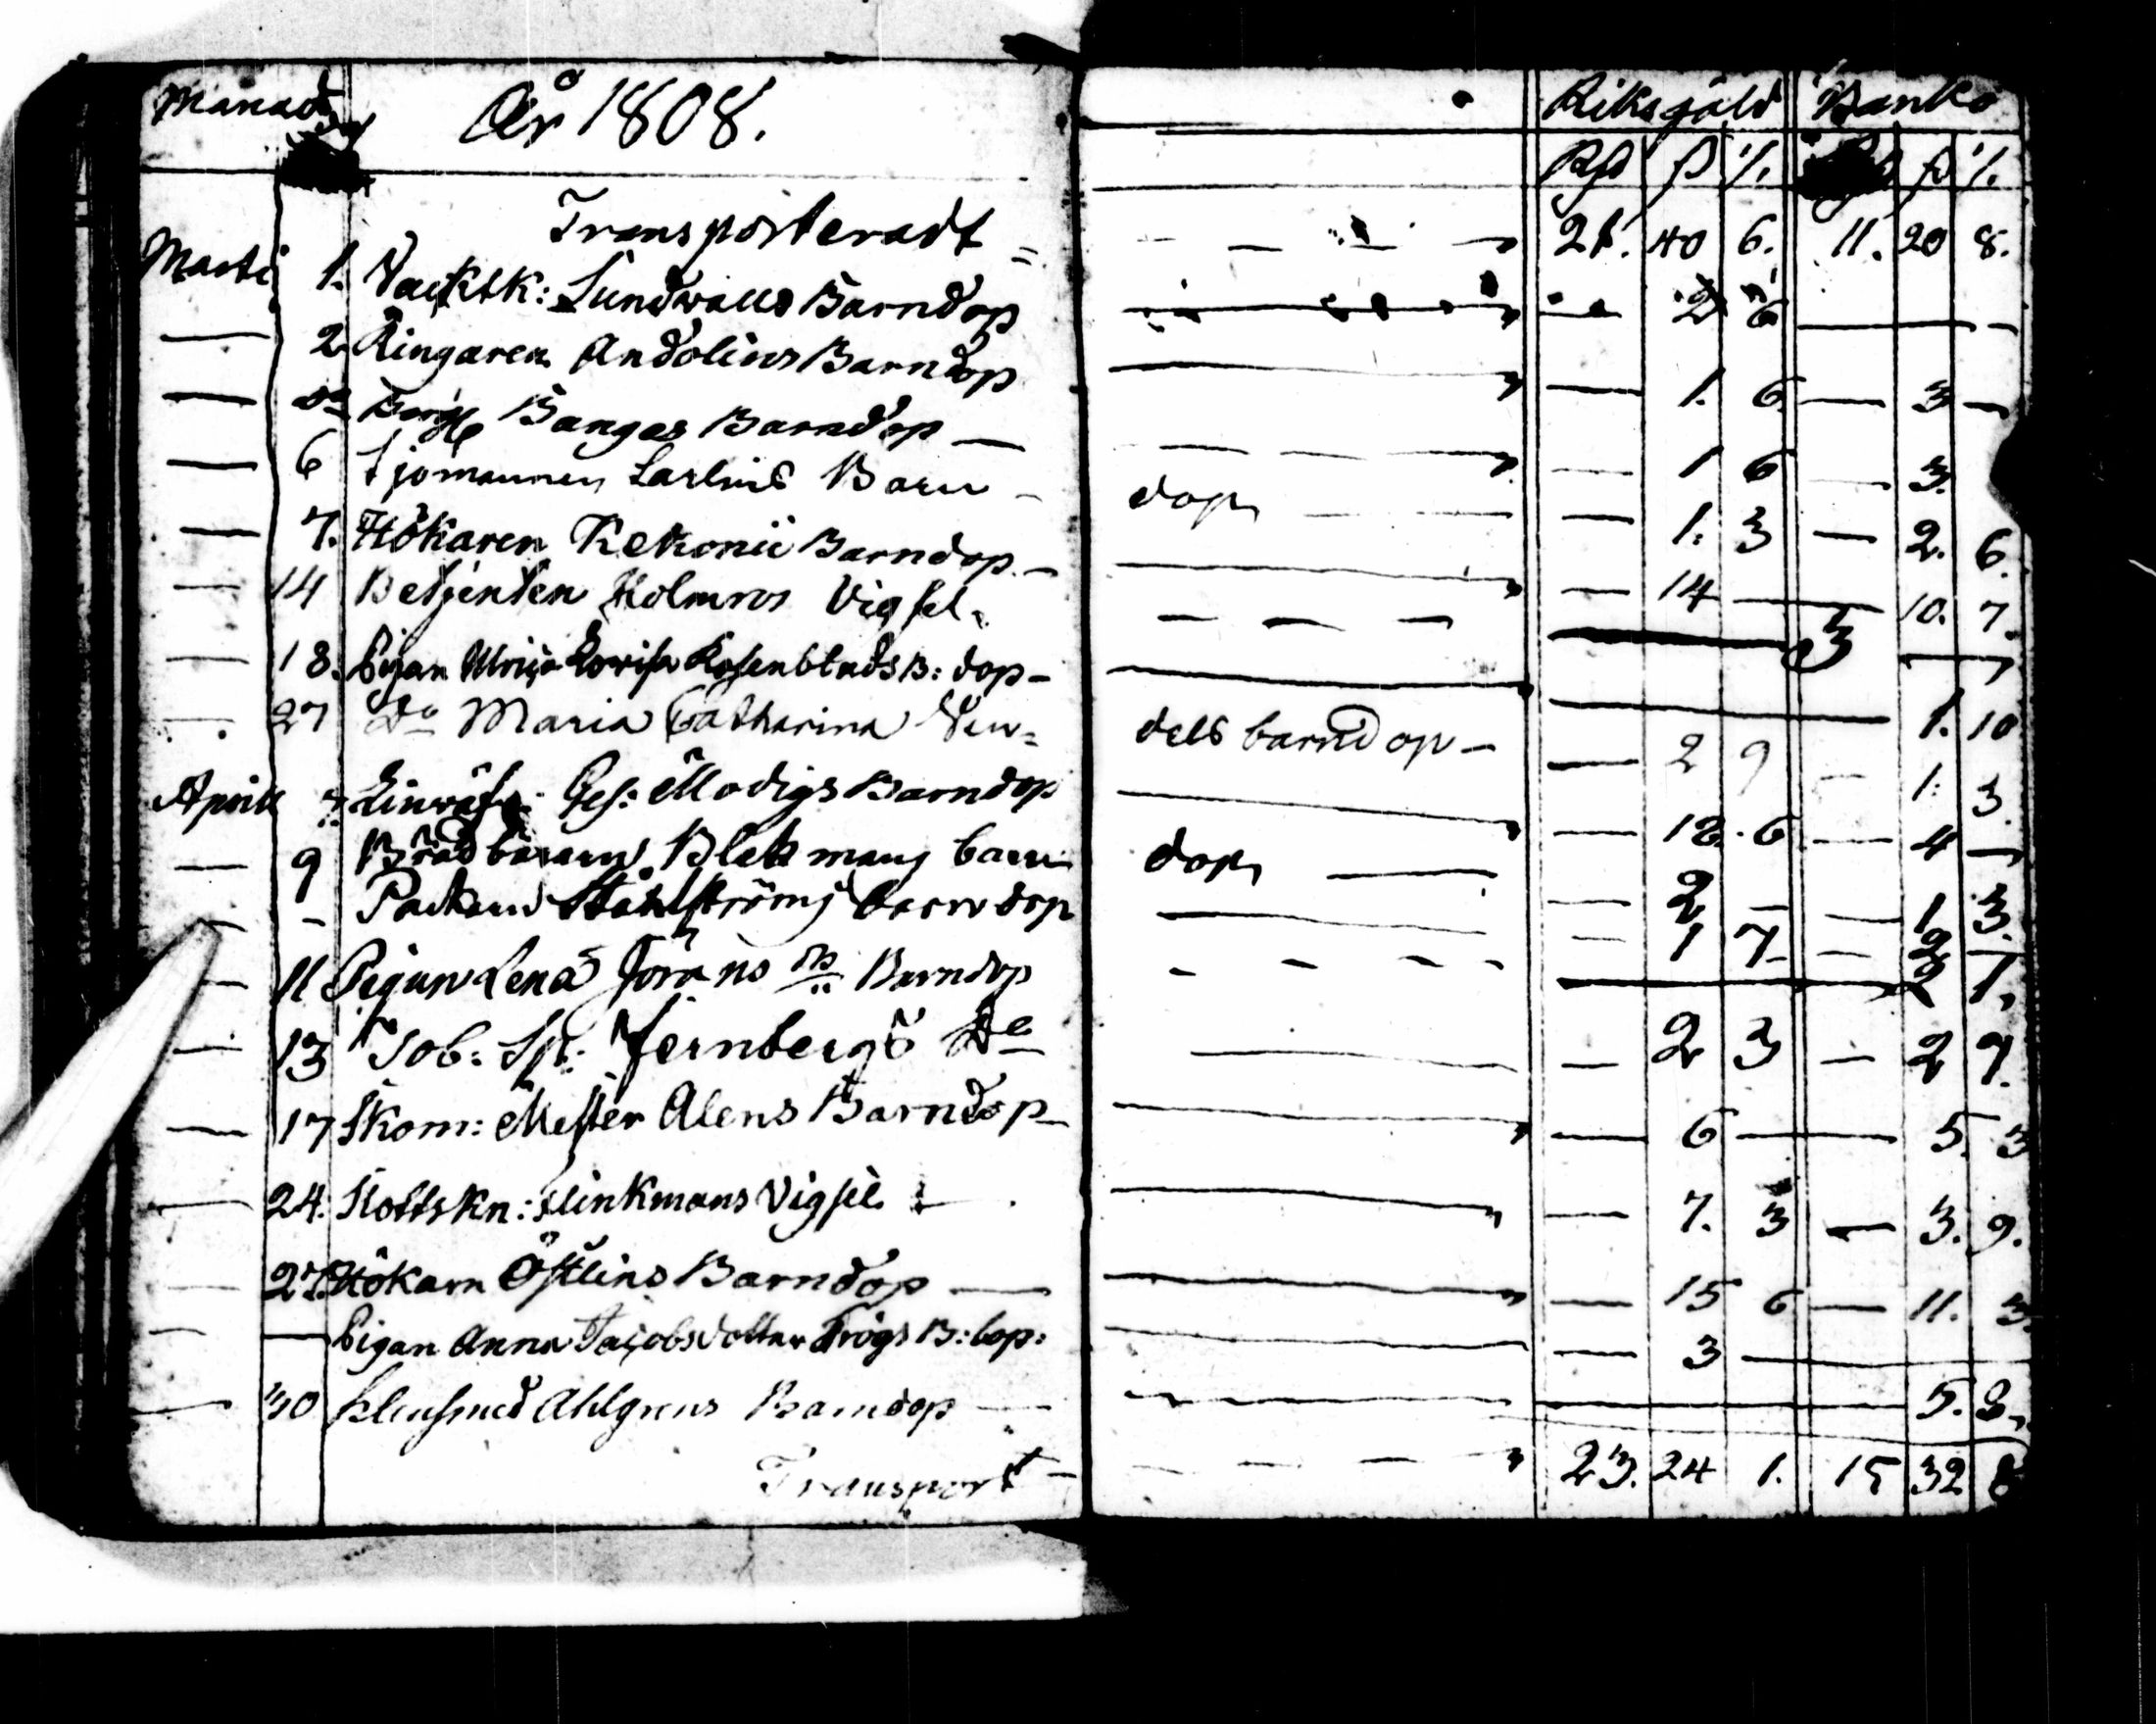 Månad År 1808. Riksgäld Banko
Rgd ß /. ß /.
Transporteradt 21. 40 6. 11. 20 8.
Marti 1. Vacktk: Lundwalls Barndop — 2 6 —
— 2 Ringaren Andolins Barndop — 1. 6. — 3 —
— Do Banges Barndop — 1 6 — 3.
— 6 Sjomannen Larlins Barn dop — 1. 3 — 2. 6.
— 7. Hökaren Rekonii Barndop — 14 — 10. 7.
— 14 Betjenten Holmros Vigsel 3 —
— 18. Pigan Ulrica Lovisa Rosenblads B: dop — 1. 10
— 27 Do Maria Catharina Ven= dels barndop — 2 9 — 1. 3.
Aprill 7. Linväf: Ges: Modigs Barndop — 12. 6 — 4 —
— 9 Brädbäraren Blekmans barn dop — 2 — — 1 3.
— - Packaren Ståhlströms barndop — 1 7 — 2 —
— 11 Pigan Lena Görans Dr Barndop — 2 1,
— 13 Tob: Sp: Jernbergs Do — 2 3 — 2 7.
— 17 Skom: Mester Alens Barndop — 6 — 5. 3
— 24. Slottskn: Flinkmans Vigsel — 7. 3 — 3. 9.
— 27. Hökarn Östlins Barndop — 15 6 — 11. 3.
— — Pigan Anna Jacobsdotter Frögs B: dop: — 3 —
— 30 Klensmed Ahlgrens Barndop — 5. 8,
Transport 23. 24 1. 15 32 8